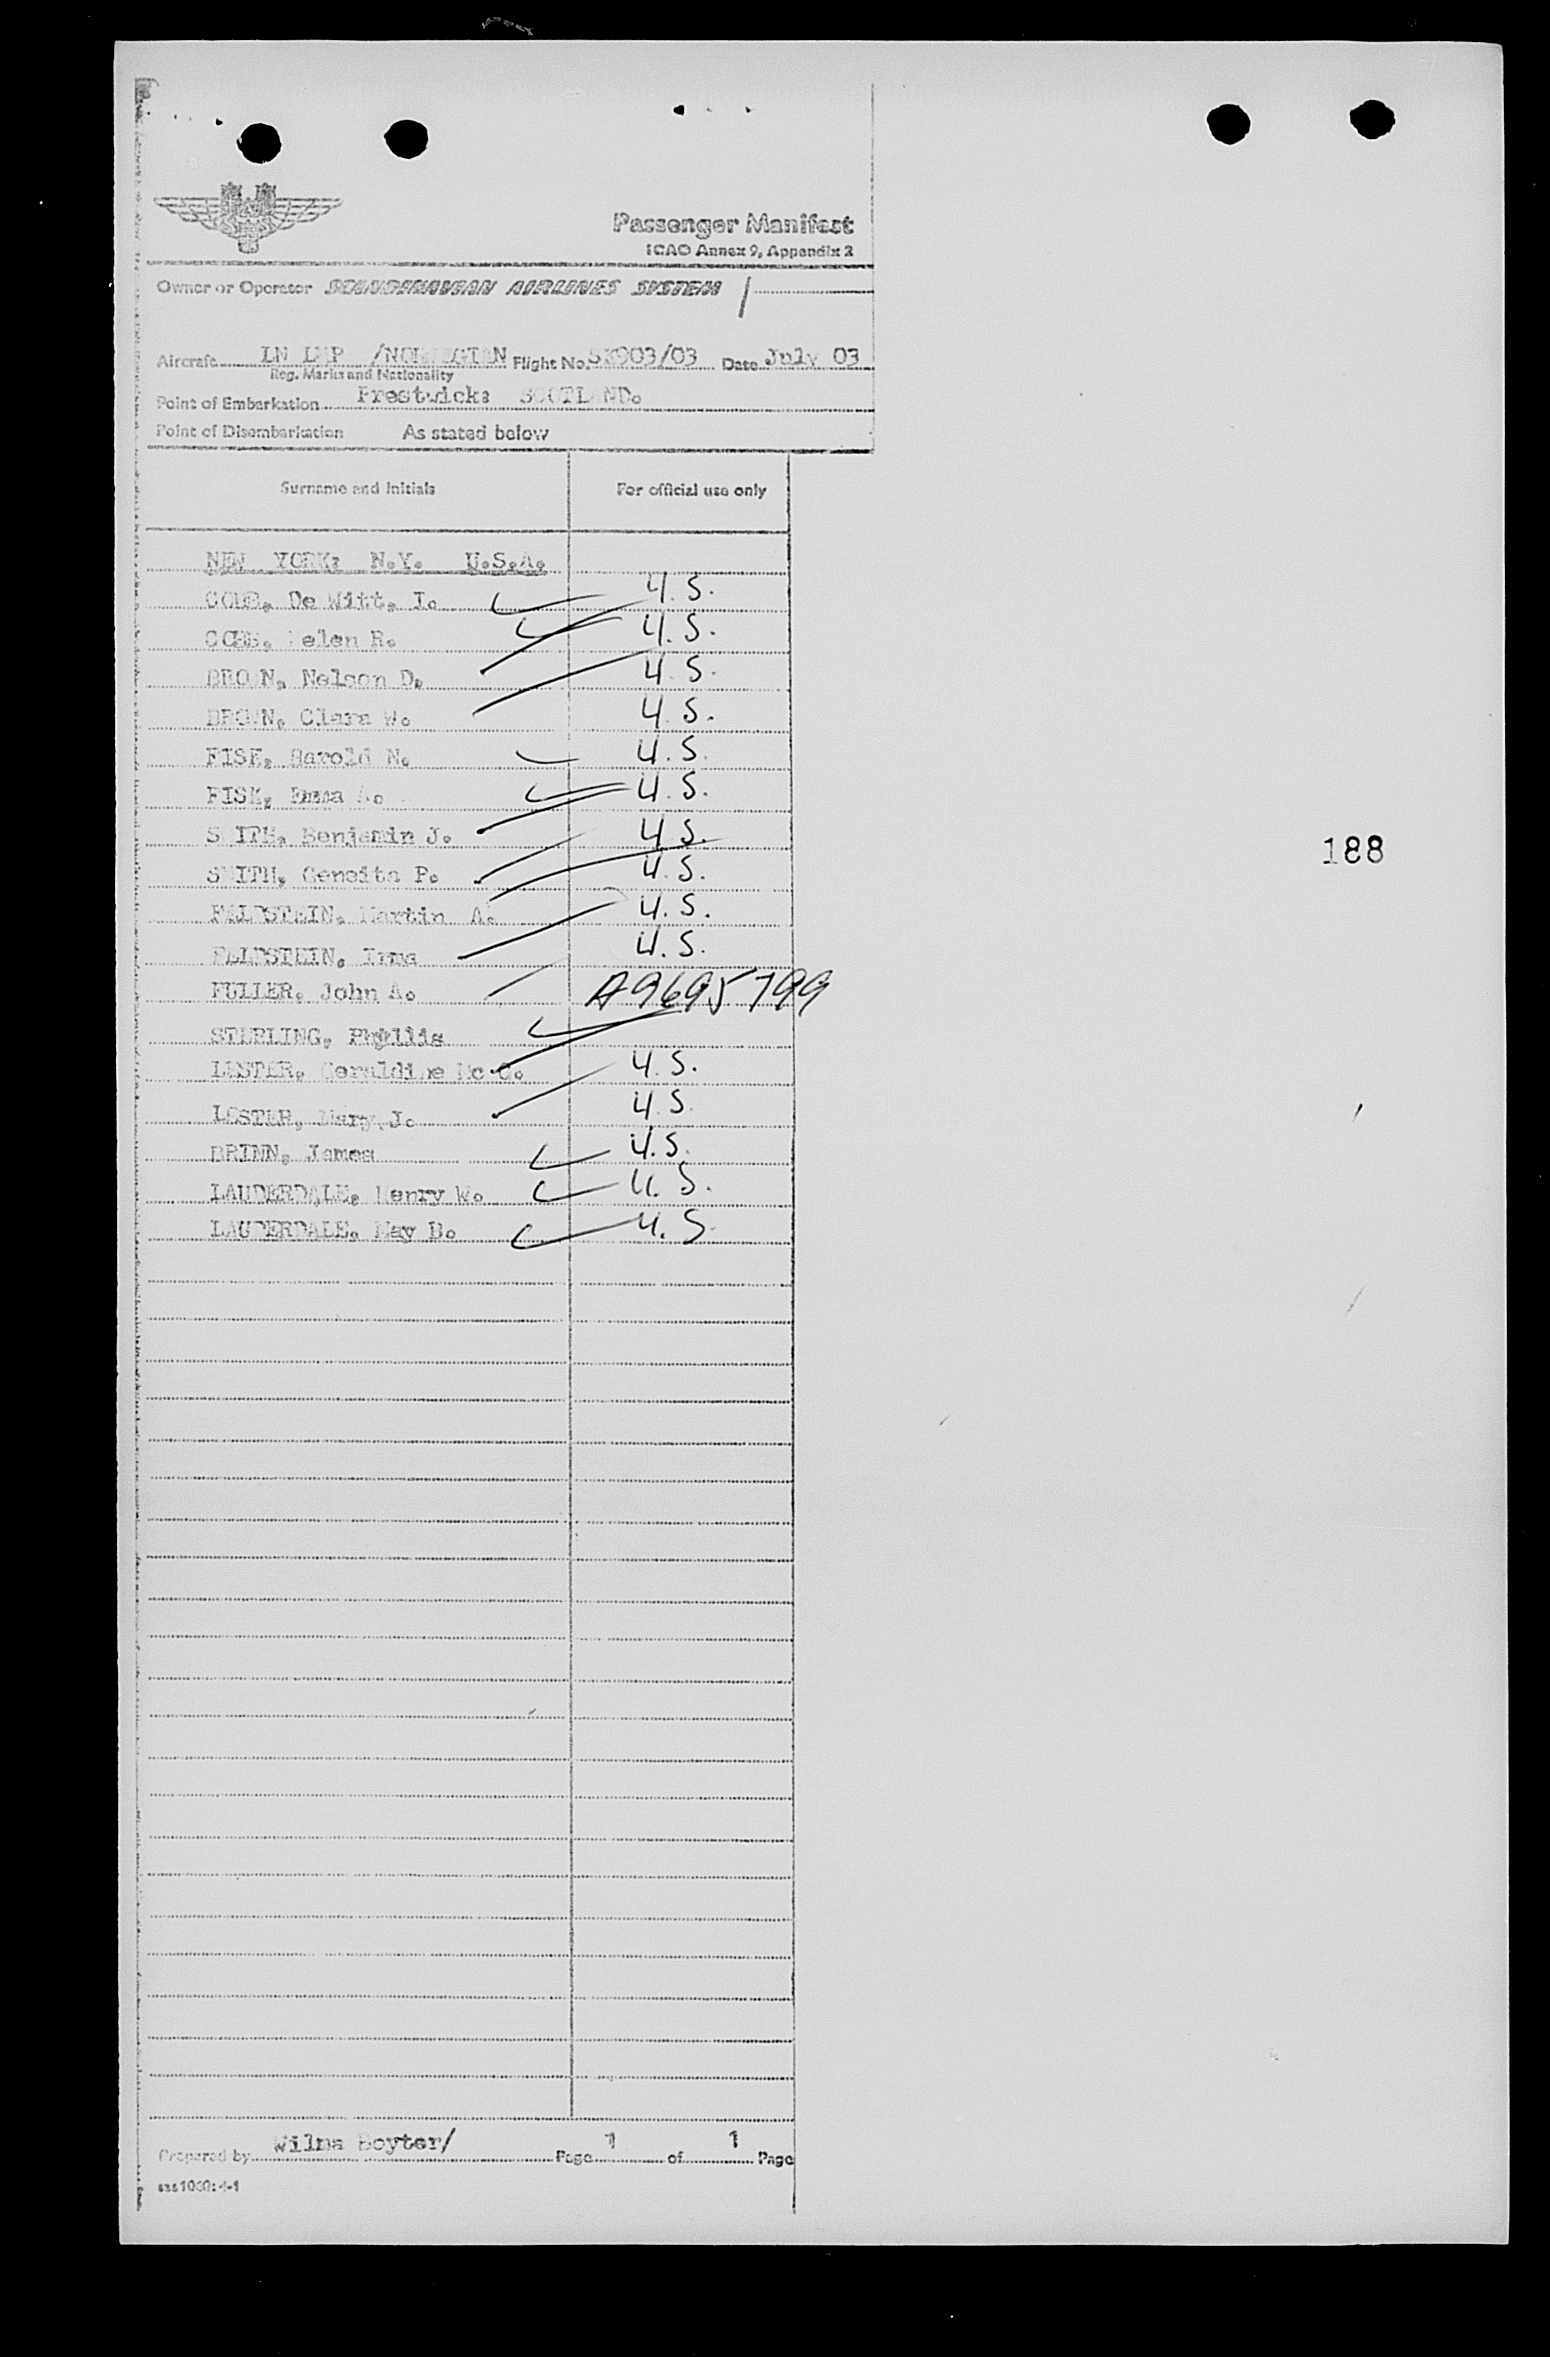 Passenger Manifest
ICAO Annex 9, Appendix 2
Owner or Operator SCANDINAVIAN AIRLINES SYSTEM
Aircraft LN LMP /NORWEGIAN Flight No. SK903/03 Date July 03
Reg. Marks and Nationality
Point of Embarkation Prestwick: SCOTLAND.
Point of Disembarkation As stated below
Surname and Initials For official use only
NEW YORK: N.Y. U.S.A.
De Witt, I. U.S.
Helen R. U.S.
BROWN, Nelson D. U.S.
BROWN, Clara W. U.S.
FISK, Harold N. U.S.
FISK, Emma A. U.S.
SMITH, Benjamin J. U.S.
SMITH, P. U.S.
Martin A. U.S.
FELDSTEIN, Irma U.S.
FULLER, John A. A9695799
STERLING, Phyllis
LESTER, Geraldine Mc C. U.S.
LESTER, Mary J. U.S.
BRINN, James U.S.
LAUDERDALE, Henry W. U.S.
LAUDERDALE, May B. U.S.
188
Prepared by Wilma Boyter/ Page 1 of 1 Page